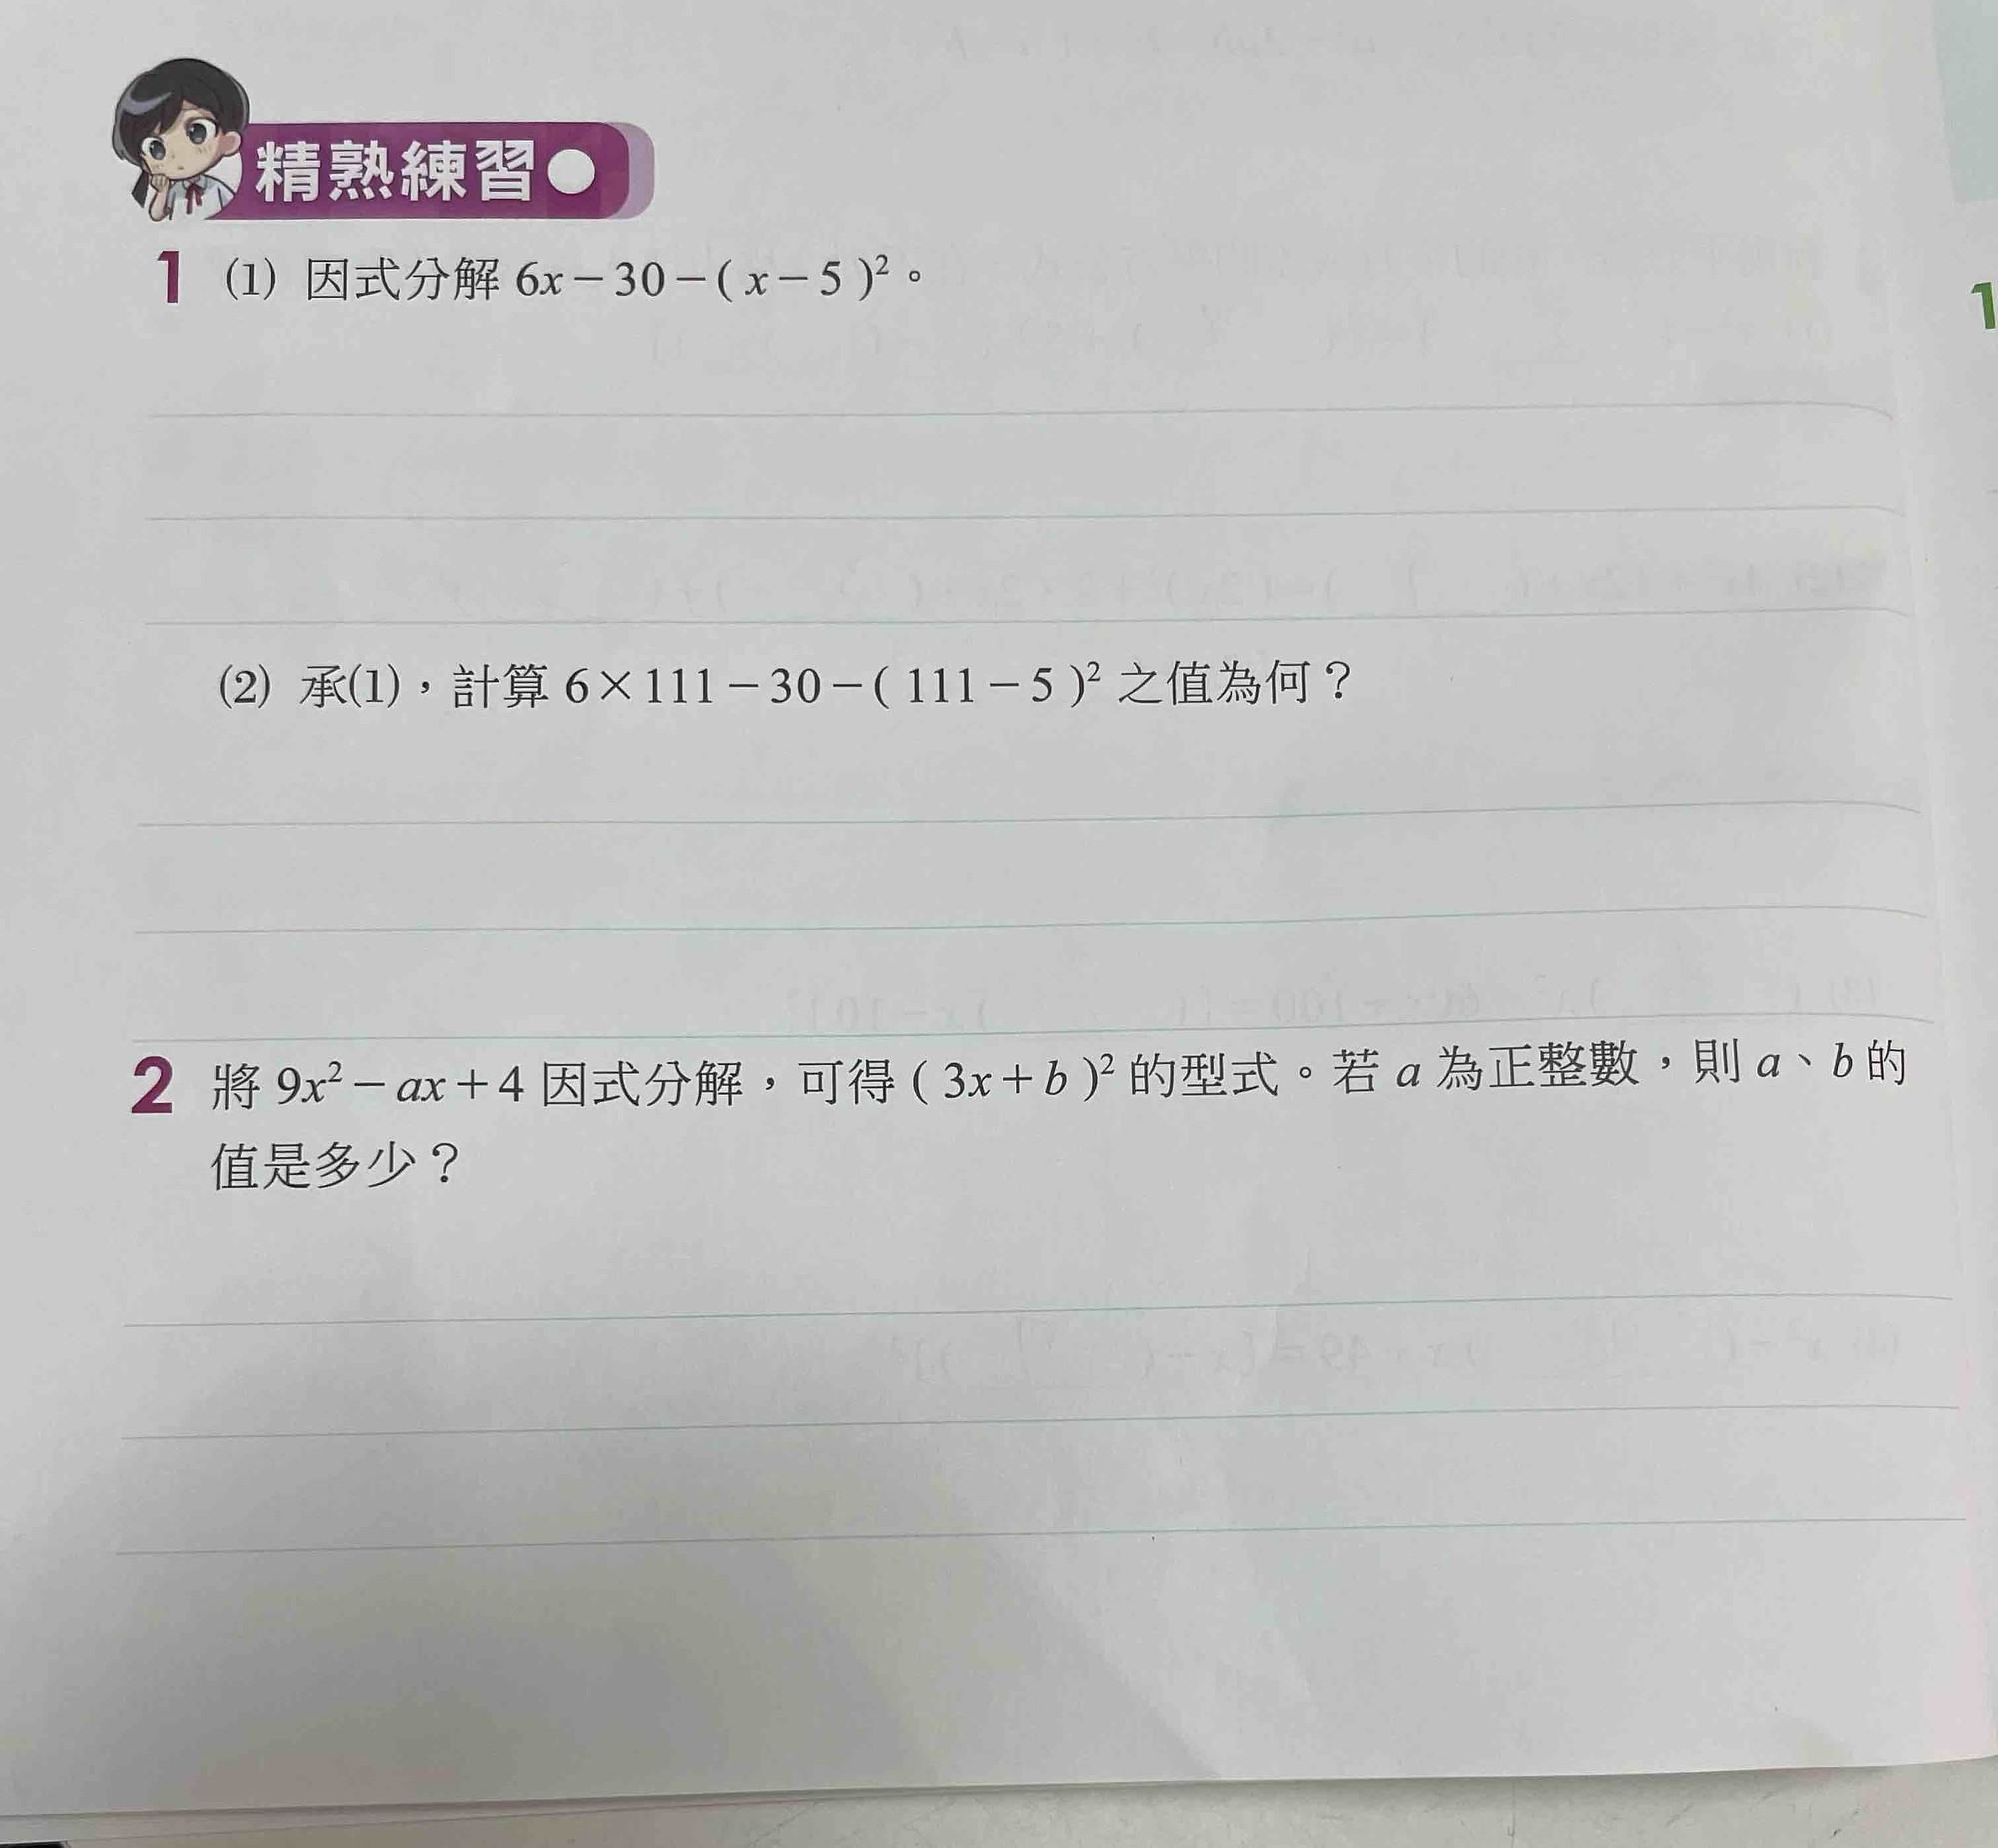 精熟練習
1 (1) 因式分解 6x－30－( x－5 )²。
(2) 承(1)，計算 6×111－30－( 111－5 )² 之值為何？
2 將 9x²－ax＋4 因式分解，可得 ( 3x＋b )² 的型式。若 a 為正整數，則 a、b 的
值是多少？
1